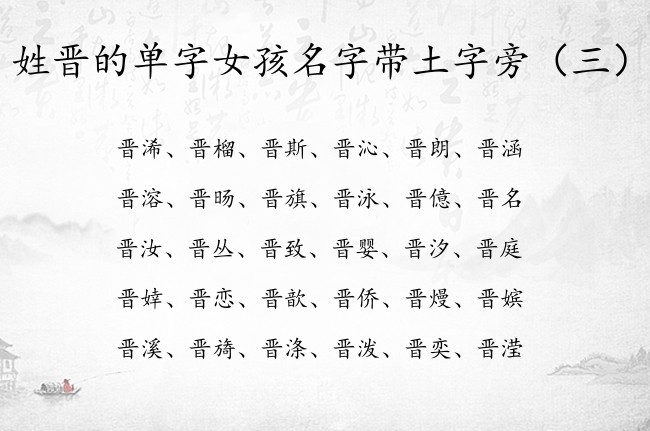 姓晋的单字女孩名字带土字旁（三）
晋浠、晋榴、晋斯、晋沁、晋朗、晋涵
晋溶、晋旸、晋旗、晋泳、晋億、晋名
晋汝、晋丛、晋致、晋婴、晋汐、晋庭
晋婞、晋恋、晋歆、晋侨、晋熳、晋嫔
晋溪、晋旖、晋涤、晋泼、晋奕、晋滢